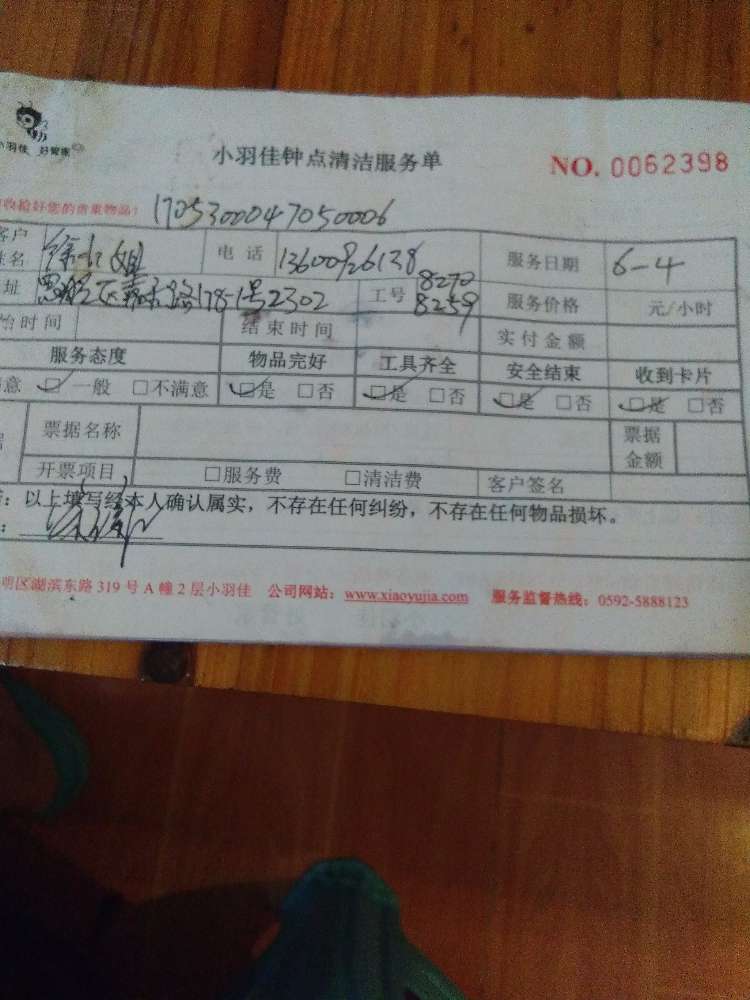 小羽佳 好管家
小羽佳钟点清洁服务单 NO. 0062398
收拾好您的贵重物品! 1705300047050006
客户姓名 徐小姐 电话 13600926138 服务日期 6-4
址 思明区嘉禾路178-1号2302 工号 8270 8259 服务价格 元/小时
始时间 结束时间 实付金额
服务态度 物品完好 工具齐全 安全结束 收到卡片
意 ☑一般 □不满意 ☑是 □否 ☑是 □否 ☑是 □否 ☑是 □否
票据名称 票据金额
开票项目 □服务费 □清洁费 客户签名
:以上填写经本人确认属实,不存在任何纠纷,不存在任何物品损坏。
明区湖滨东路 319 号 A 幢 2 层小羽佳 公司网站:www.xiaoyujia.com 服务监督热线:0592-5888123